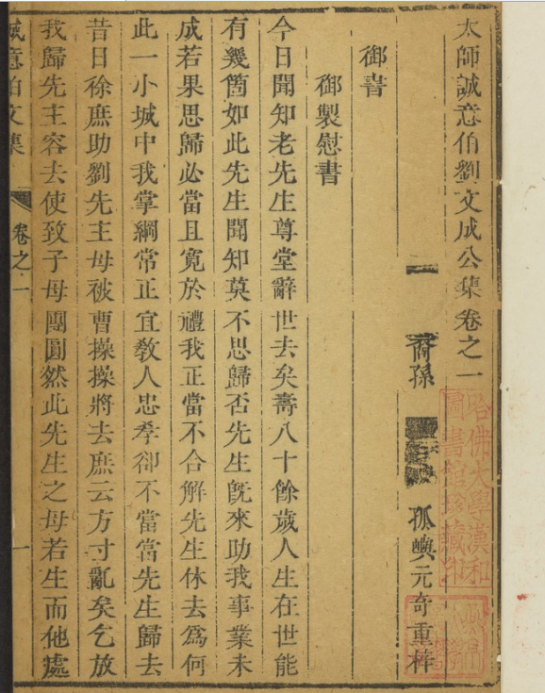 太師誠意伯劉文成公集卷之一
裔孫 孤嶼元奇重梓
御書
御製慰書
今日聞知老先生尊堂辭世去矣壽八十餘歲人生在世能
有幾箇如此先生聞知莫不思歸否先生旣來助我事業未
成若果思歸必當且寬於禮我正當不合解先生休去爲何
此一小城中我掌綱常正宜敎人忠孝卻不當當先生歸去
昔日徐庶助劉先主母被曹操操將去庶云方寸亂矣乞放
我歸先主容去使致子母團圓然此先生之母若生而他處
誠意伯文集 卷之一 一
哈佛大學漢和圖書館珍藏印